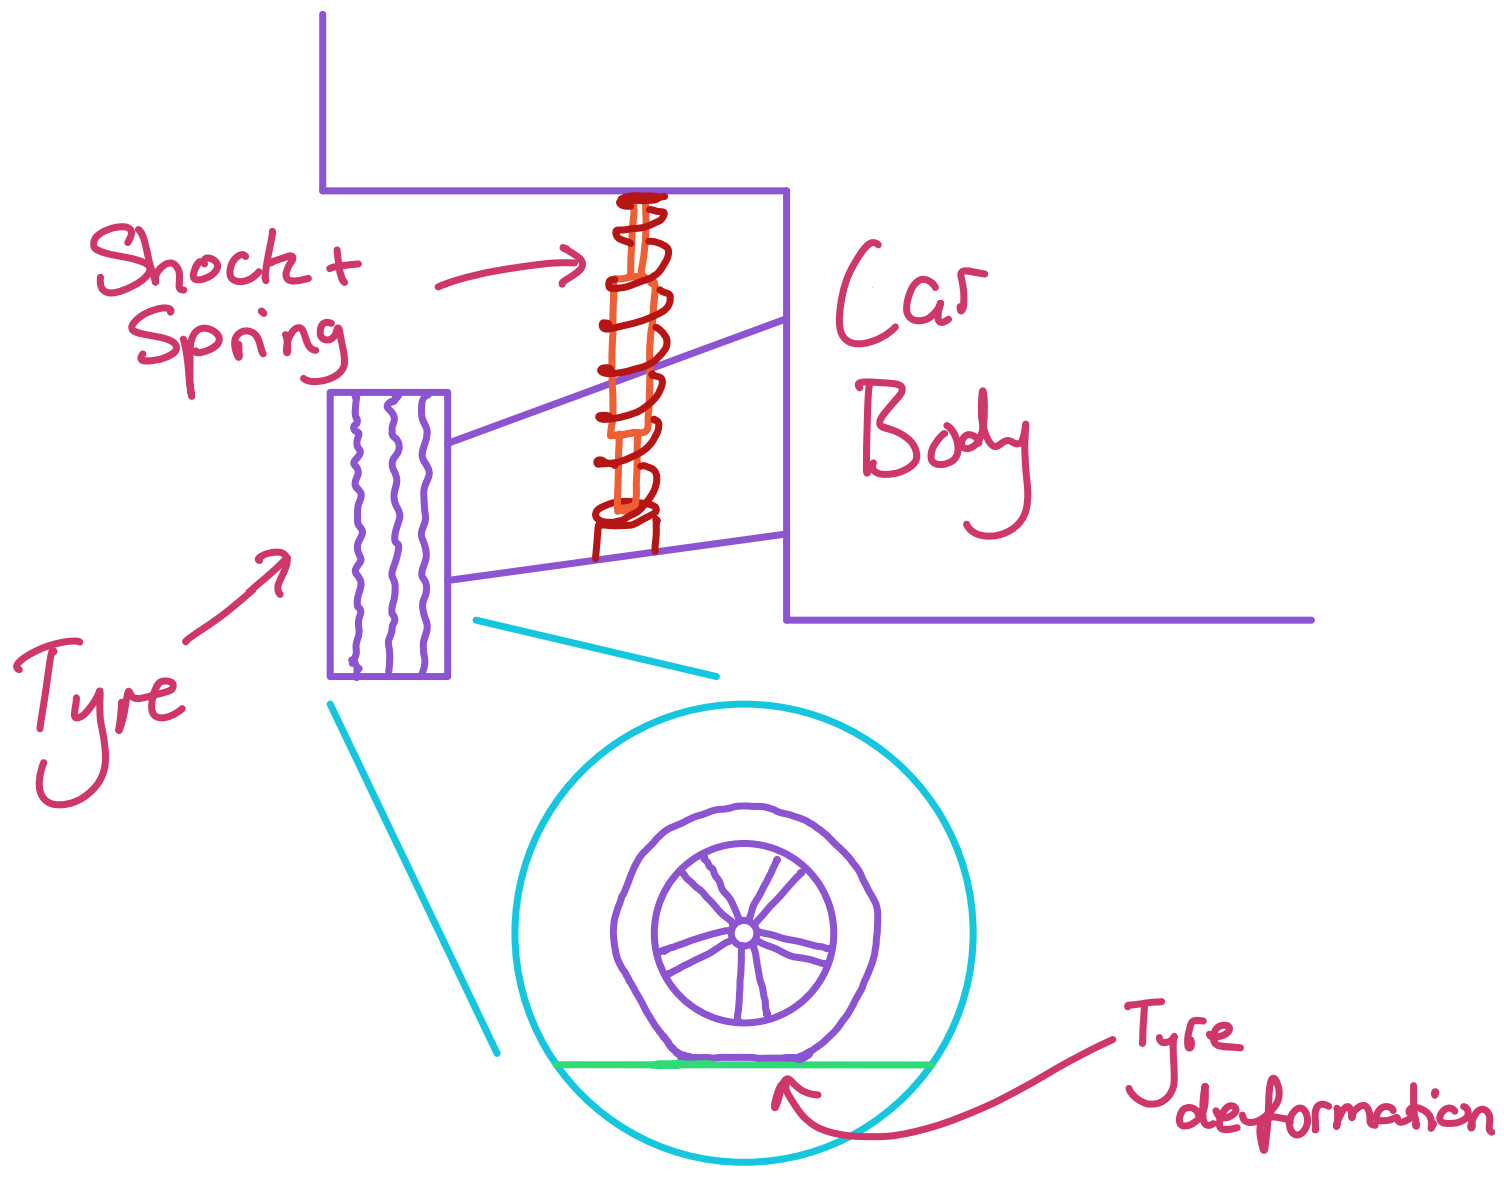 Shock +
Spring
Car
Body
Tyre
Tyre
deformation